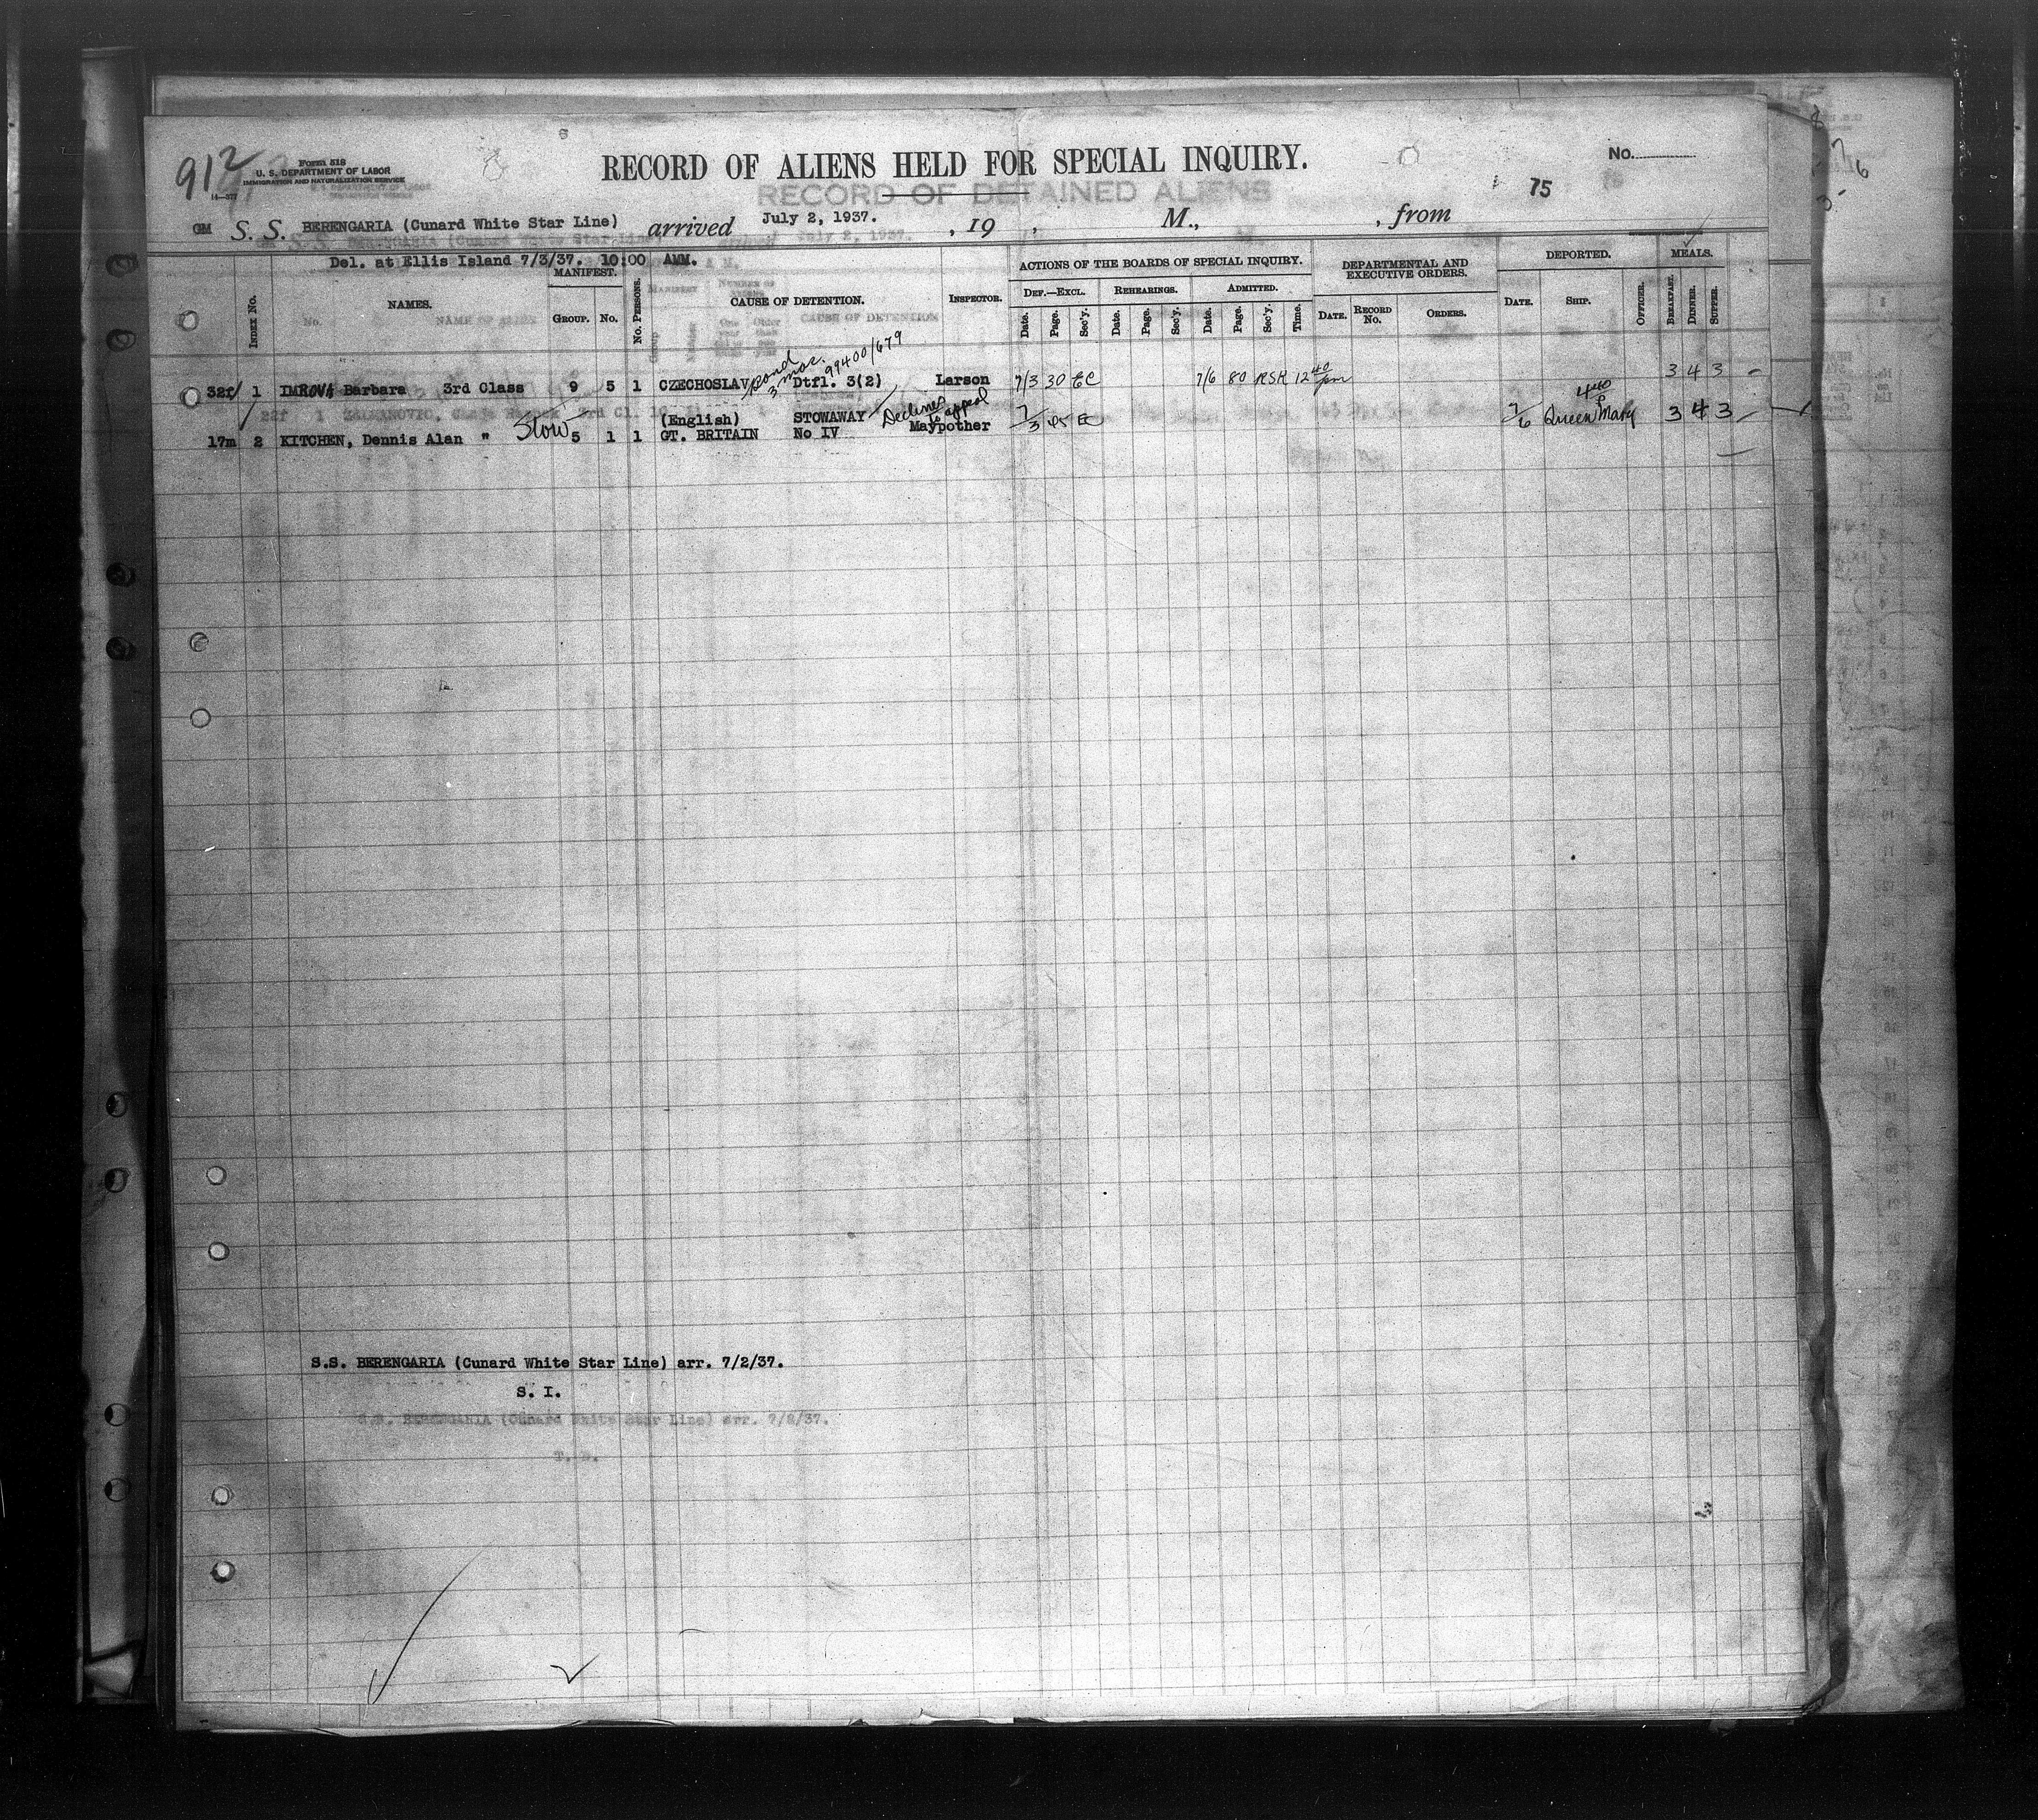 912
Form 518
U. S. DEPARTMENT OF LABOR
IMMIGRATION AND NATURALIZATION SERVICE
14—377
RECORD OF ALIENS HELD FOR SPECIAL INQUIRY.
No.
RECORD OF DETAINED ALIENS
75
GM S. S. BERENGARIA (Cunard White Star Line) arrived July 2, 1937. , 19 , M., , from
Del. at Ellis Island 7/3/37. 10:00 AMM.
INDEX No.
NAMES.
MANIFEST.
GROUP.
No.
No. PERSONS.
CAUSE OF DETENTION.
INSPECTOR.
ACTIONS OF THE BOARDS OF SPECIAL INQUIRY.
DEF.—EXCL.
Date.
Page.
Sec'y.
REHEARINGS.
Date.
Page.
Sec'y.
ADMITTED.
Date.
Page.
Sec'y.
Time.
DEPARTMENTAL AND
EXECUTIVE ORDERS.
DATE.
RECORD No.
ORDERS.
DEPORTED.
DATE.
SHIP.
OFFICER.
MEALS.
BREAKFAST.
DINNER.
SUPPER.
Bond
3 mos. 99400/679
32f 1 IMROVA Barbara 3rd Class 9 5 1 CZECHOSLAV Dtfl. 3(2) Larson 7/3 30 EC 7/6 80 RSK 12 40 pm 3 4 3
(English) STOWAWAY Declines appeal
17m 2 KITCHEN, Dennis Alan " Stow 5 1 1 GT. BRITAIN No IV Maypother 7/3 45 EC 7/6 Queen Mary 4 40 P 3 4 3
S.S. BERENGARIA (Cunard White Star Line) arr. 7/2/37.
S. I.
S.S. BERENGARIA (Cunard White Star Line) arr. 7/2/37.
T. D.